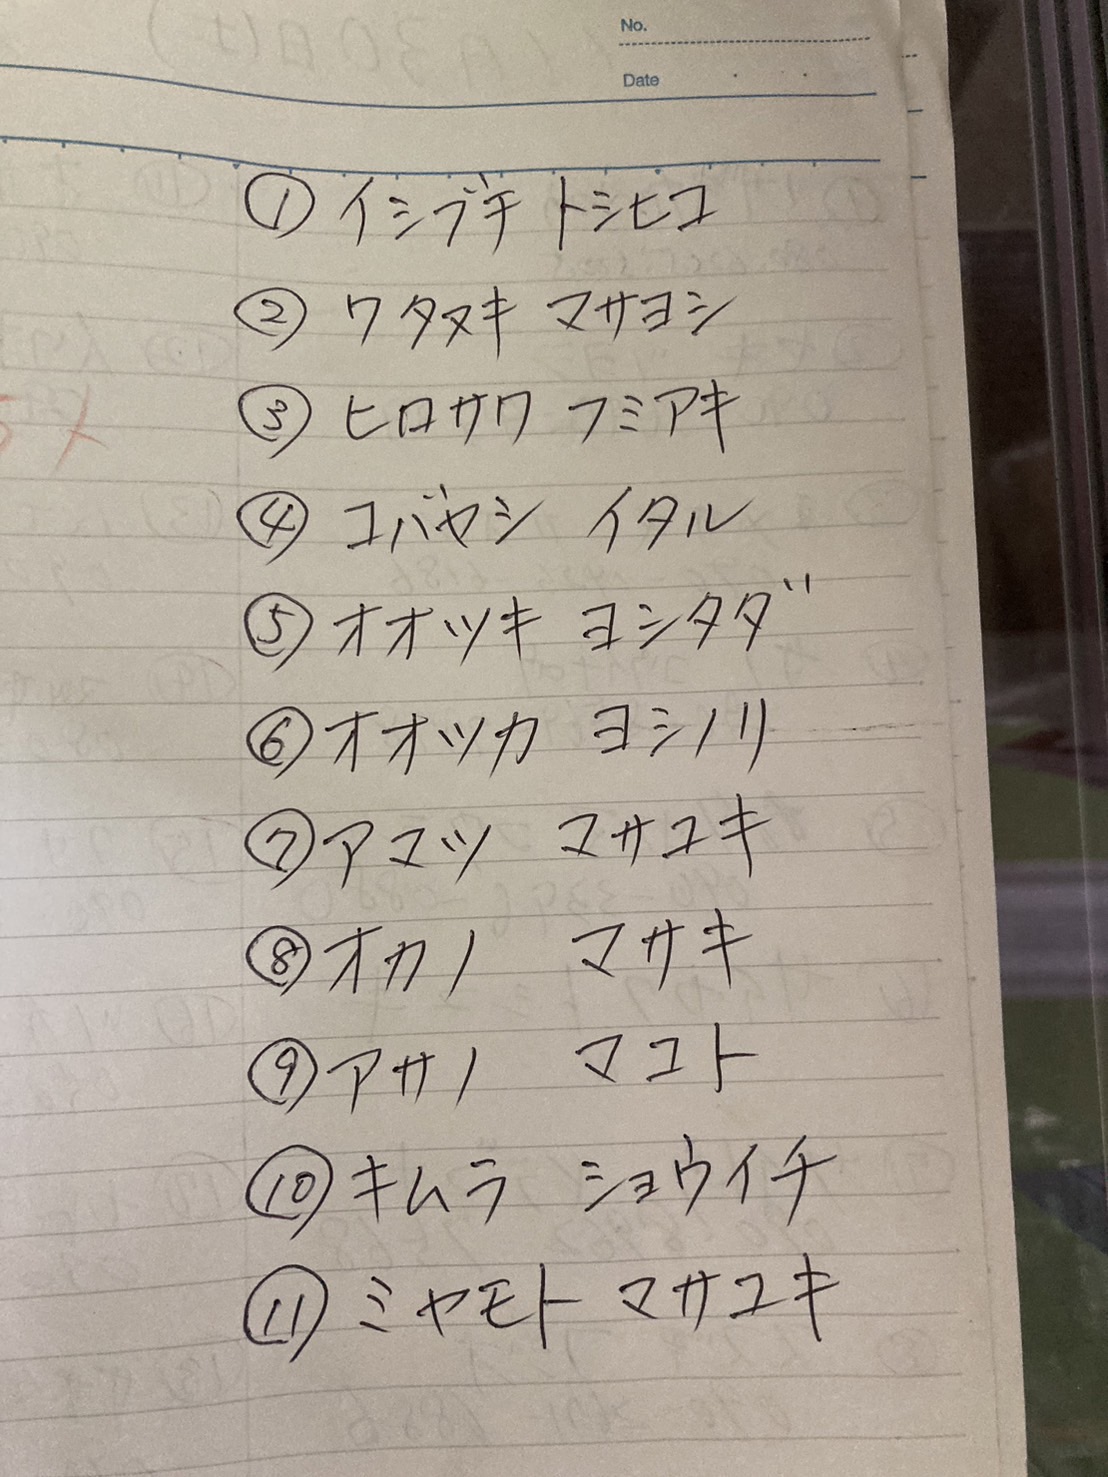 No.
Date
① イシブチ トシヒコ
② ワタヌキ マサヨシ
③ ヒロサワ フミアキ
④ コバヤシ イタル
⑤ オオツキ ヨシタダ
⑥ オオツカ ヨシノリ
⑦ アマツ マサユキ
⑧ オカノ マサキ
⑨ アサノ マコト
⑩ キムラ ショウイチ
⑪ ミヤモト マサユキ